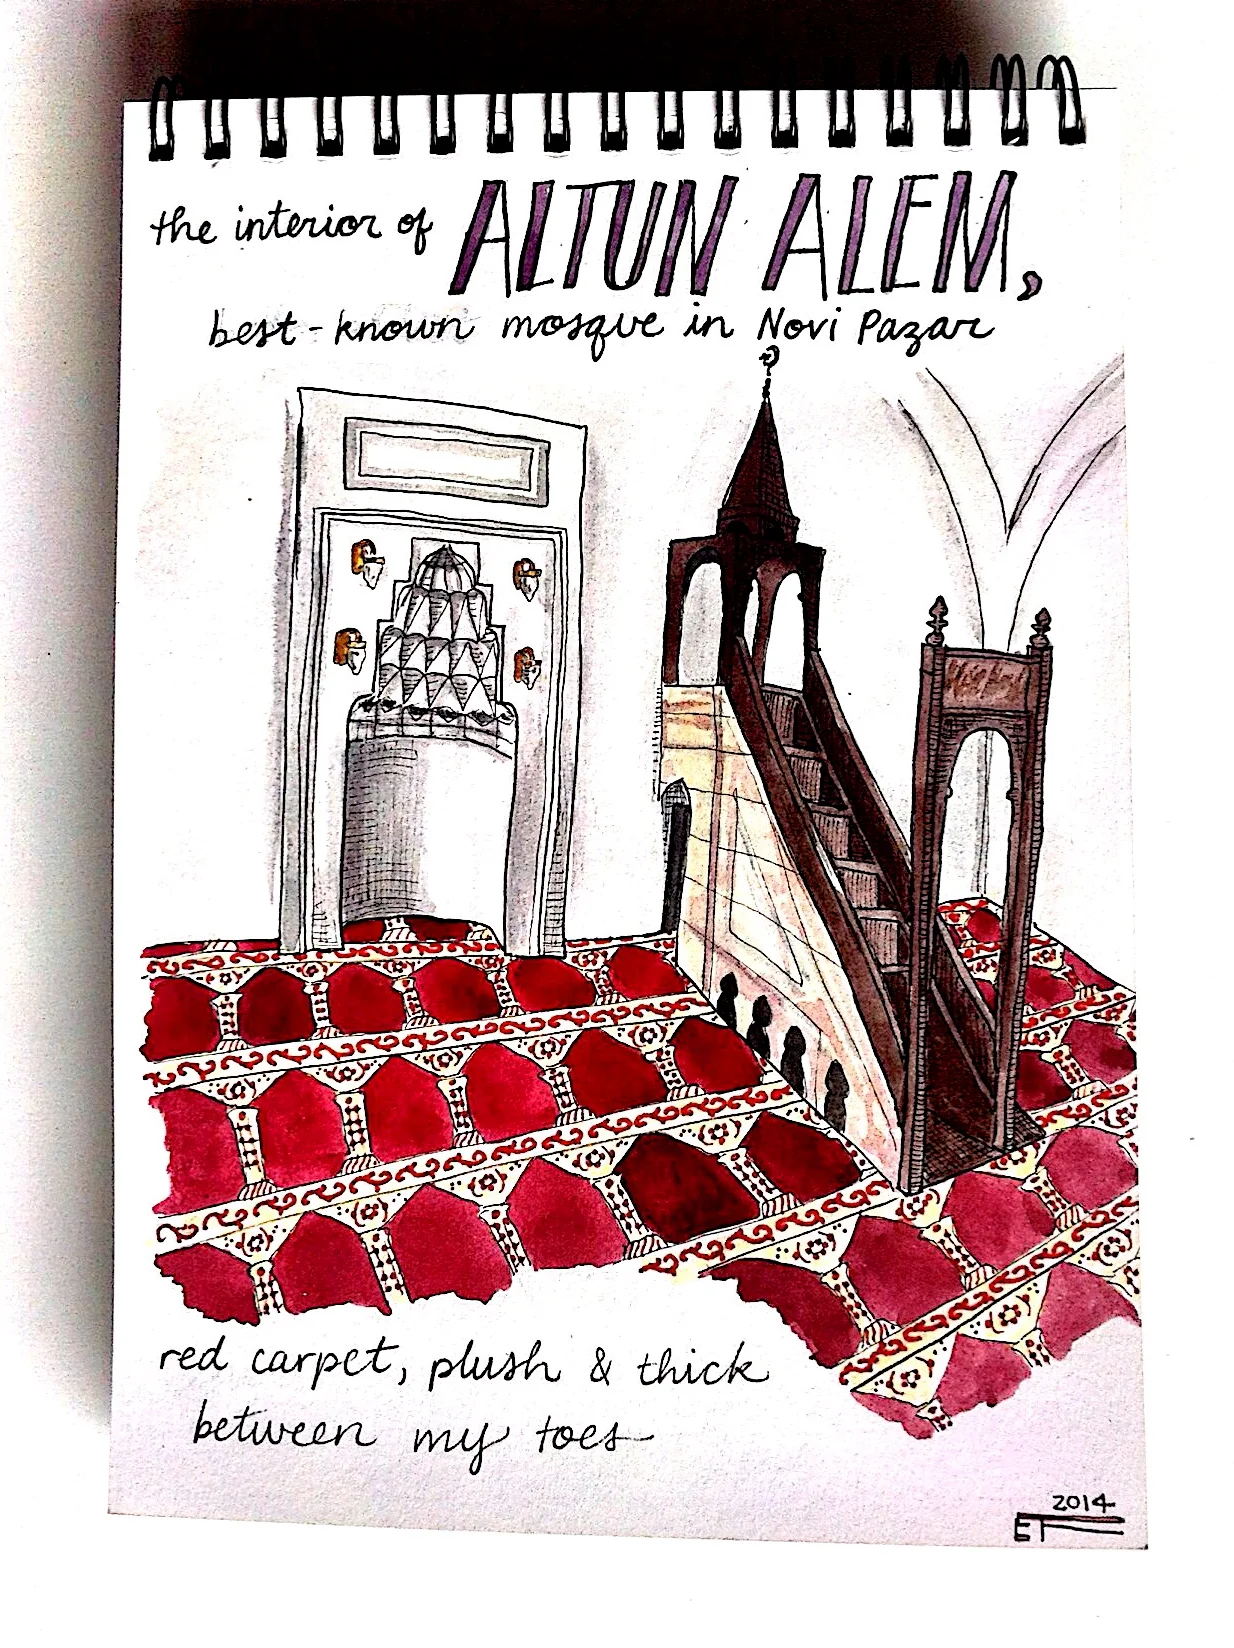 the interior of ALTUN ALEM,
best-known mosque in Novi Pazar
red carpet, plush & thick
between my toes
2014
ET